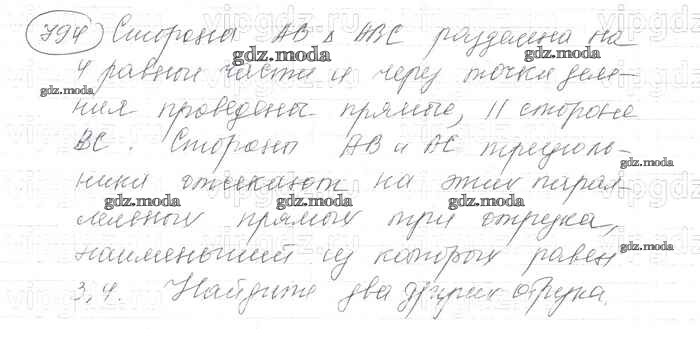 794 Стороны AB Δ ABC разделена на
4 равных части и через точки деле-
ния проведены прямые, || стороне
BC. Стороны AB и AC треуголь-
ника отсекают на этих парал-
лельных прямых три отрезка,
наименьший из которых равен
3,4. Найдите два других отрезка.
gdz.moda
gdz.moda
gdz.moda
gdz.moda
gdz.moda
gdz.moda
gdz.moda
gdz.moda